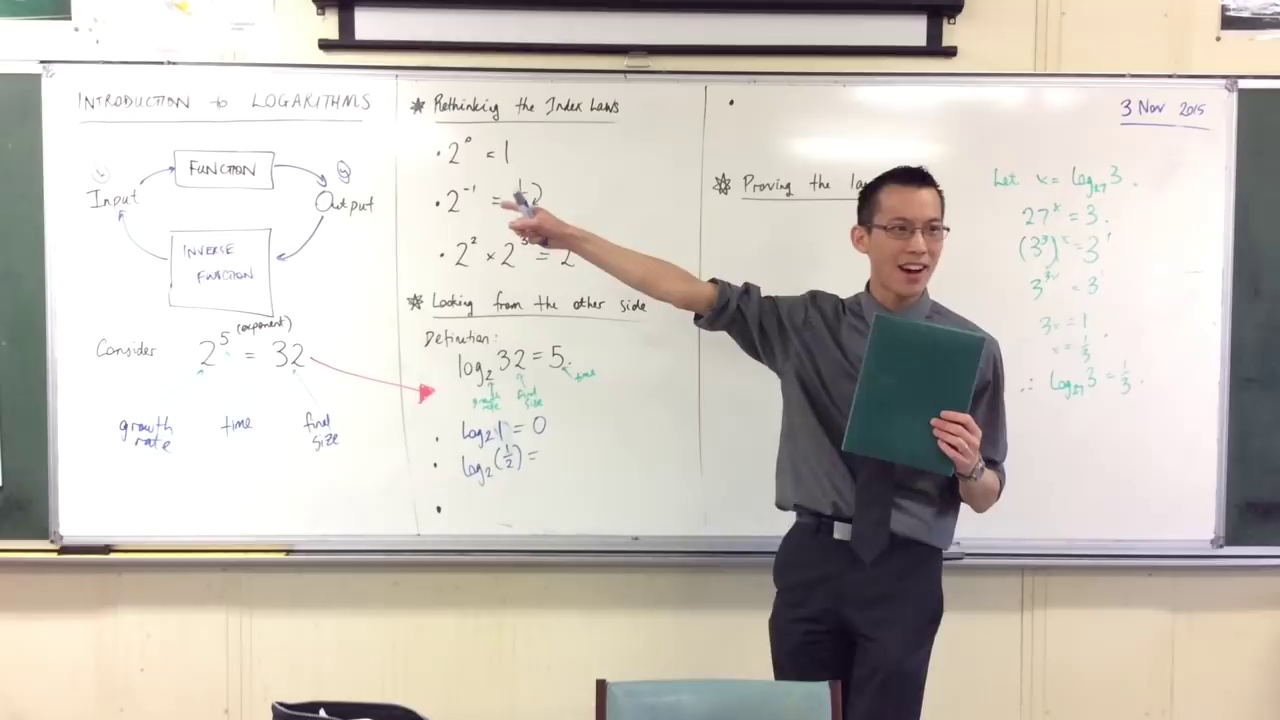 INTRODUCTION to LOGARITHMS
FUNCTION
Input
Output
INVERSE
FUNCTION
Consider 2^5 (exponent) = 32
growth rate time final size
* Rethinking the Index Laws
• 2^0 = 1
• 2^-1 =
• 2^2 × 2^3 = 2
* Looking from the other side
Definition:
log_2 32 = 5.
growth rate final size time
• log_2 1 = 0
• log_2 (1/2) =
•
•
* Proving the
3 Nov 2015
Let x = log_27 3.
27^x = 3.
(3^3)^x = 3^1
3^3x = 3^1
3x = 1
x = 1/3.
∴ log_27 3 = 1/3.